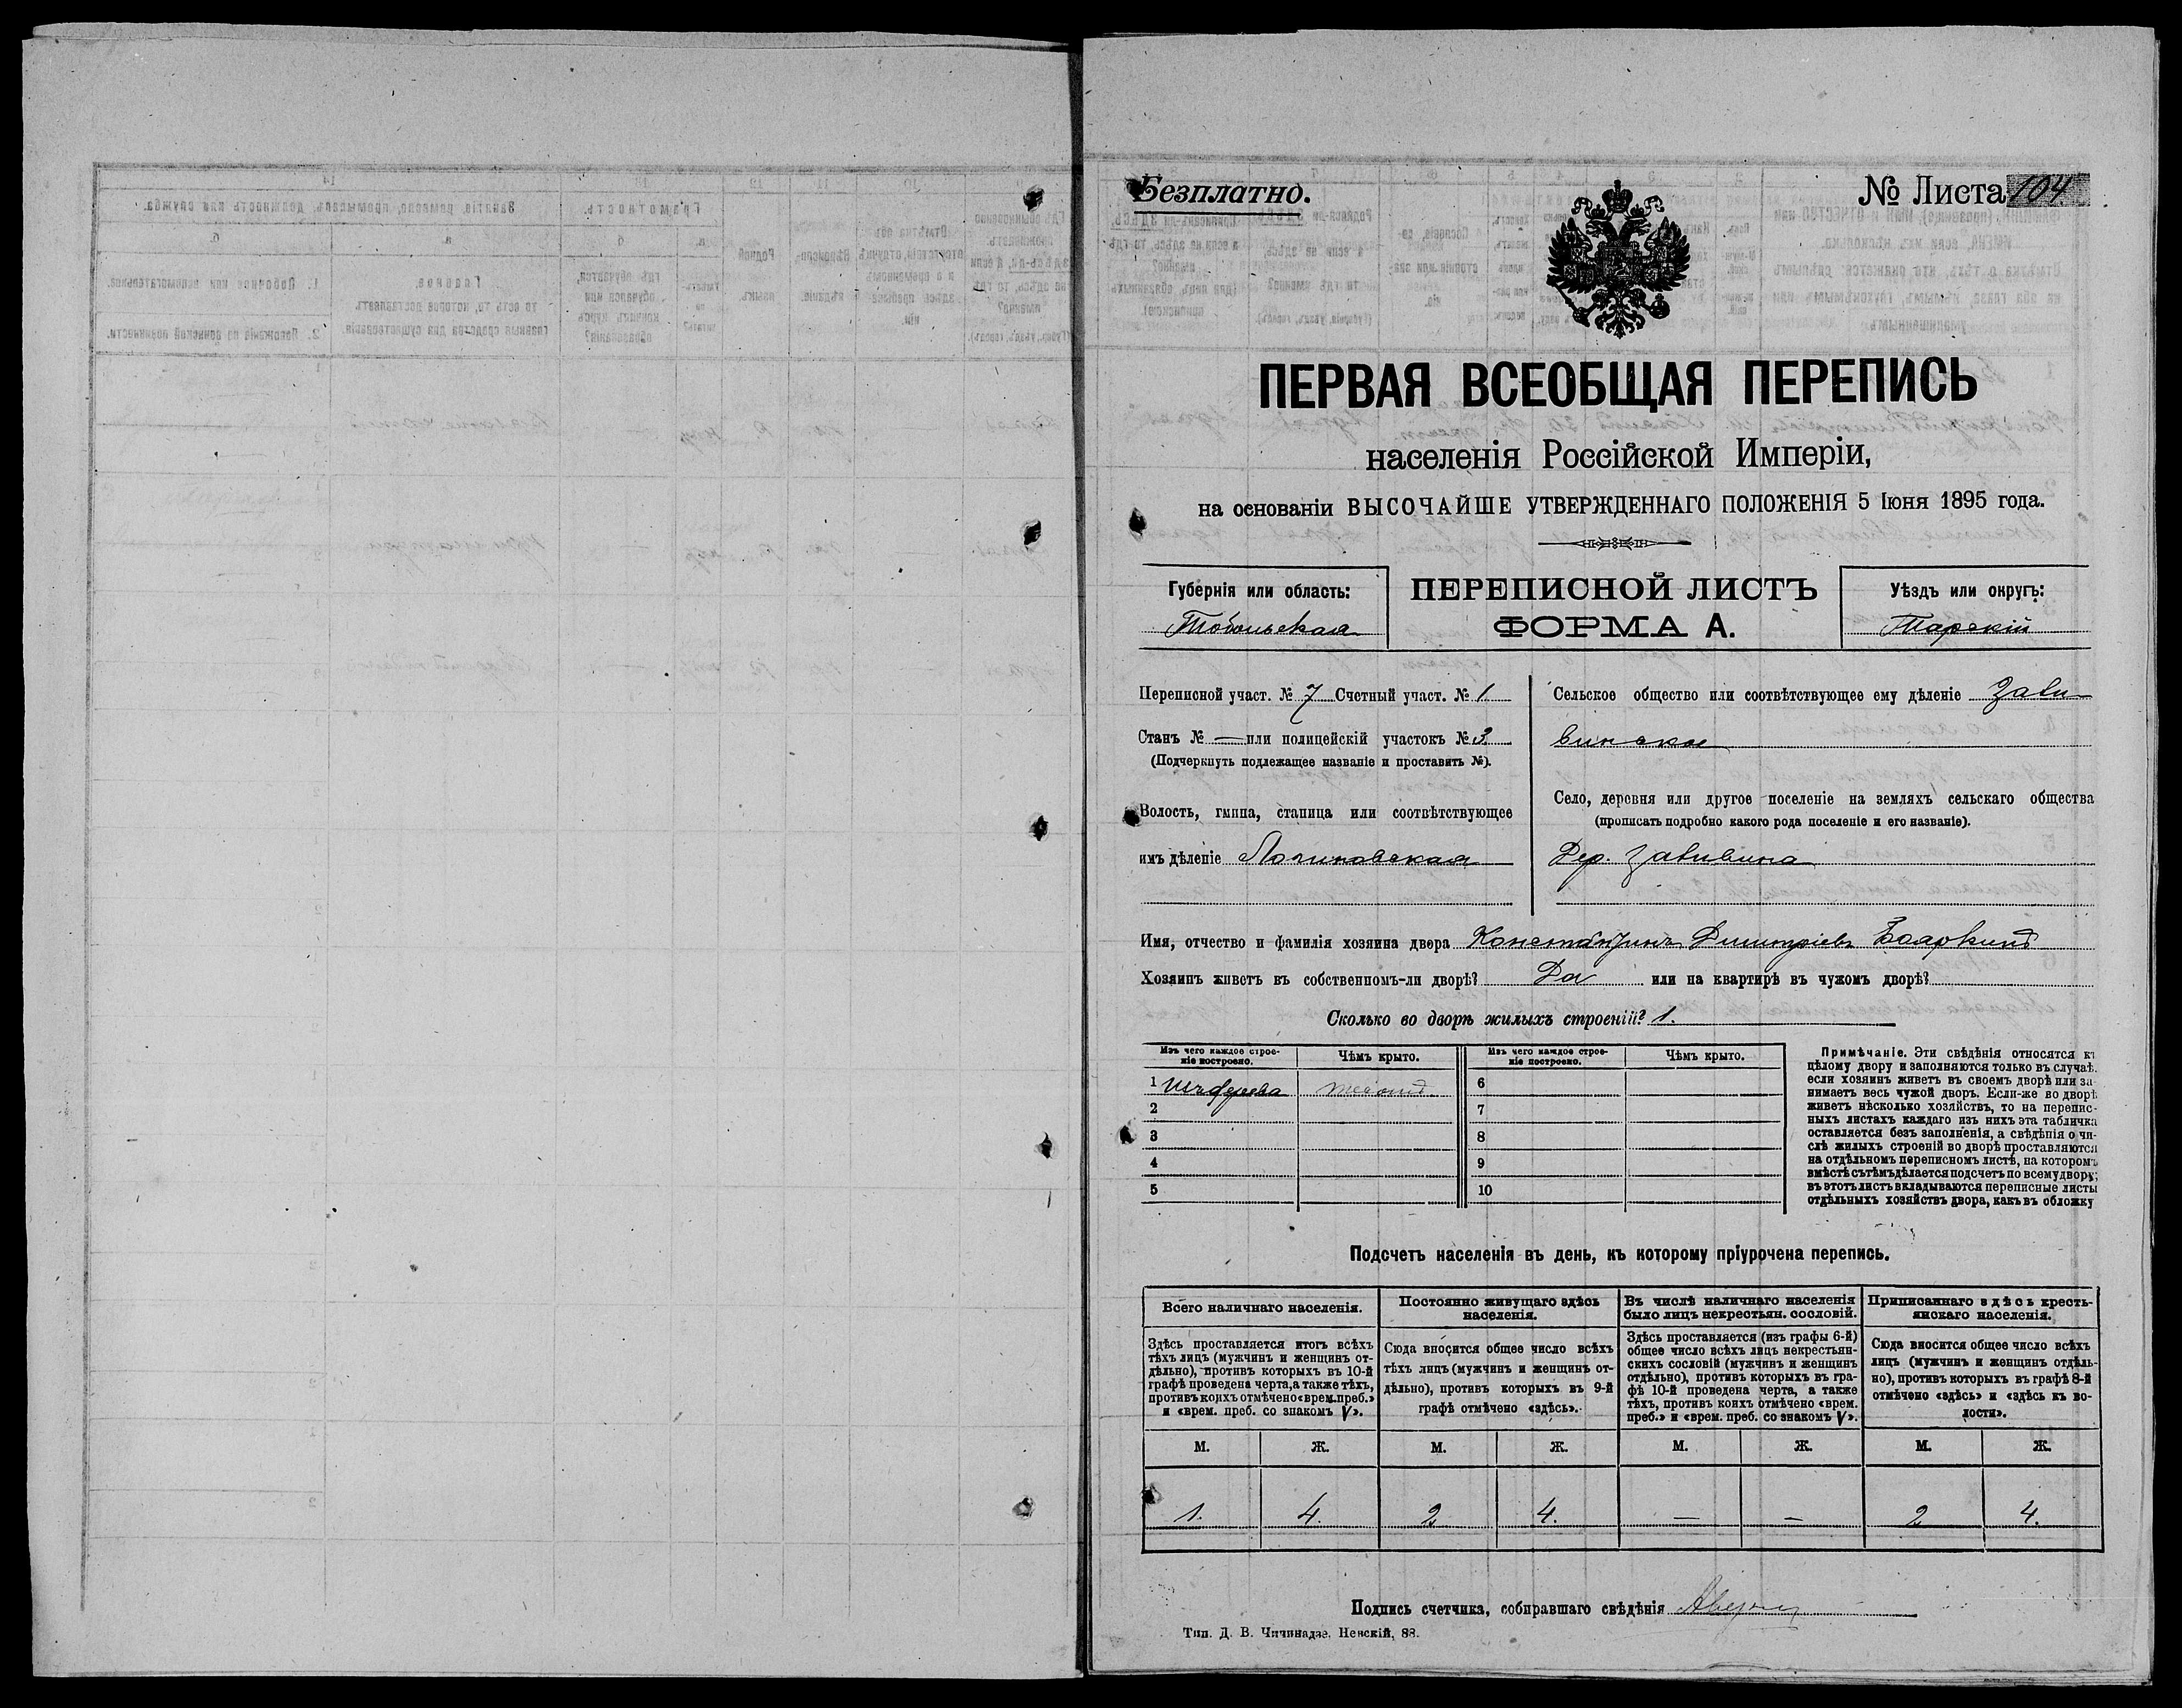 Безплатно.
№ Листа 104
ПЕРВАЯ ВСЕОБЩАЯ ПЕРЕПИСЬ
населенія Россійской Имперіи,
на основаніи ВЫСОЧАЙШЕ УТВЕРЖДЕННАГО ПОЛОЖЕНІЯ 5 Іюня 1895 года.
Губернія или область:
Тобольская
ПЕРЕПИСНОЙ ЛИСТЪ
ФОРМА А.
Уѣздъ или округъ:
Тарскій
Переписной участ. № 7 Счетный участ. № 1
Станъ № — или полицейскій участокъ № 3
(Подчеркнуть подлежащее названіе и проставить №).
Волость, гмина, станица или соотвѣтствующее
имъ дѣленіе Логиновская
Сельское общество или соотвѣтствующее ему дѣленіе Зави-
винское
Село, деревня или другое поселеніе на земляхъ сельскаго общества
(прописать подробно какого рода поселеніе и его названіе).
Дер. Завивина
Имя, отчество и фамилія хозяина двора Константинъ Дмитріевъ Бояркинъ
Хозяинъ живетъ въ собственномъ-ли дворѣ? Да или на квартирѣ въ чужомъ дворѣ?
Сколько во дворѣ жилыхъ строеній? 1.
Изъ чего каждое строе-
ніе построено.
Чѣмъ крыто.
Изъ чего каждое строе-
ніе построено.
Чѣмъ крыто.
1 Изъ дерева тесомъ 6
2 7
3 8
4 9
5 10
Примѣчаніе. Эти свѣдѣнія относятся къ
цѣлому двору и заполняются только въ случаѣ,
если хозяинъ живетъ въ своемъ дворѣ или за-
нимаетъ весь чужой дворъ. Если-же во дворѣ
живетъ нѣсколько хозяйствъ, то на перепис-
ныхъ листахъ каждаго изъ нихъ эта табличка
оставляется безъ заполненія, а свѣдѣнія о чи-
слѣ жилыхъ строеній во дворѣ проставляются
на отдѣльномъ переписномъ листѣ, на которомъ
вмѣстѣ съ тѣмъ дѣлается подсчетъ по всему двору;
въ этотъ листъ вкладываются переписные листы
отдѣльныхъ хозяйствъ двора, какъ въ обложку
Подсчетъ населенія въ день, къ которому пріурочена перепись.
Всего наличнаго населенія.
Здѣсь проставляется итогъ всѣхъ
тѣхъ лицъ (мужчинъ и женщинъ от-
дѣльно), противъ которыхъ въ 10-й
графѣ проведена черта, а также тѣхъ,
противъ коихъ отмѣчено «врем. преб.»
и «врем. преб. со знакомъ V».
Постоянно живущаго здѣсь
населенія.
Сюда вносится общее число всѣхъ
тѣхъ лицъ (мужчинъ и женщинъ от-
дѣльно), противъ которыхъ въ 9-й
графѣ отмѣчено «здѣсь».
Въ числѣ наличнаго населенія
было лицъ некрестьян. сословій.
Здѣсь проставляется (изъ графы 6-й)
общее число всѣхъ лицъ некрестьян-
скихъ сословій (мужчинъ и женщинъ
отдѣльно), противъ которыхъ въ гра-
фѣ 10-й проведена черта, а также
тѣхъ, противъ коихъ отмѣчено «врем.
преб.» и «врем. преб. со знакомъ V».
Приписаннаго здѣсь кресть-
янскаго населенія.
Сюда вносится общее число всѣхъ
лицъ (мужчинъ и женщинъ отдѣль-
но), противъ которыхъ въ графѣ 8-й
отмѣчено «здѣсь» и «здѣсь къ во-
лости».
М. Ж. М. Ж. М. Ж. М. Ж.
1. 4. 2 4. — — 2 4.
Подпись счетчика, собиравшаго свѣдѣнія
Тип. Д. В. Чичинадзе, Невскій, 88.